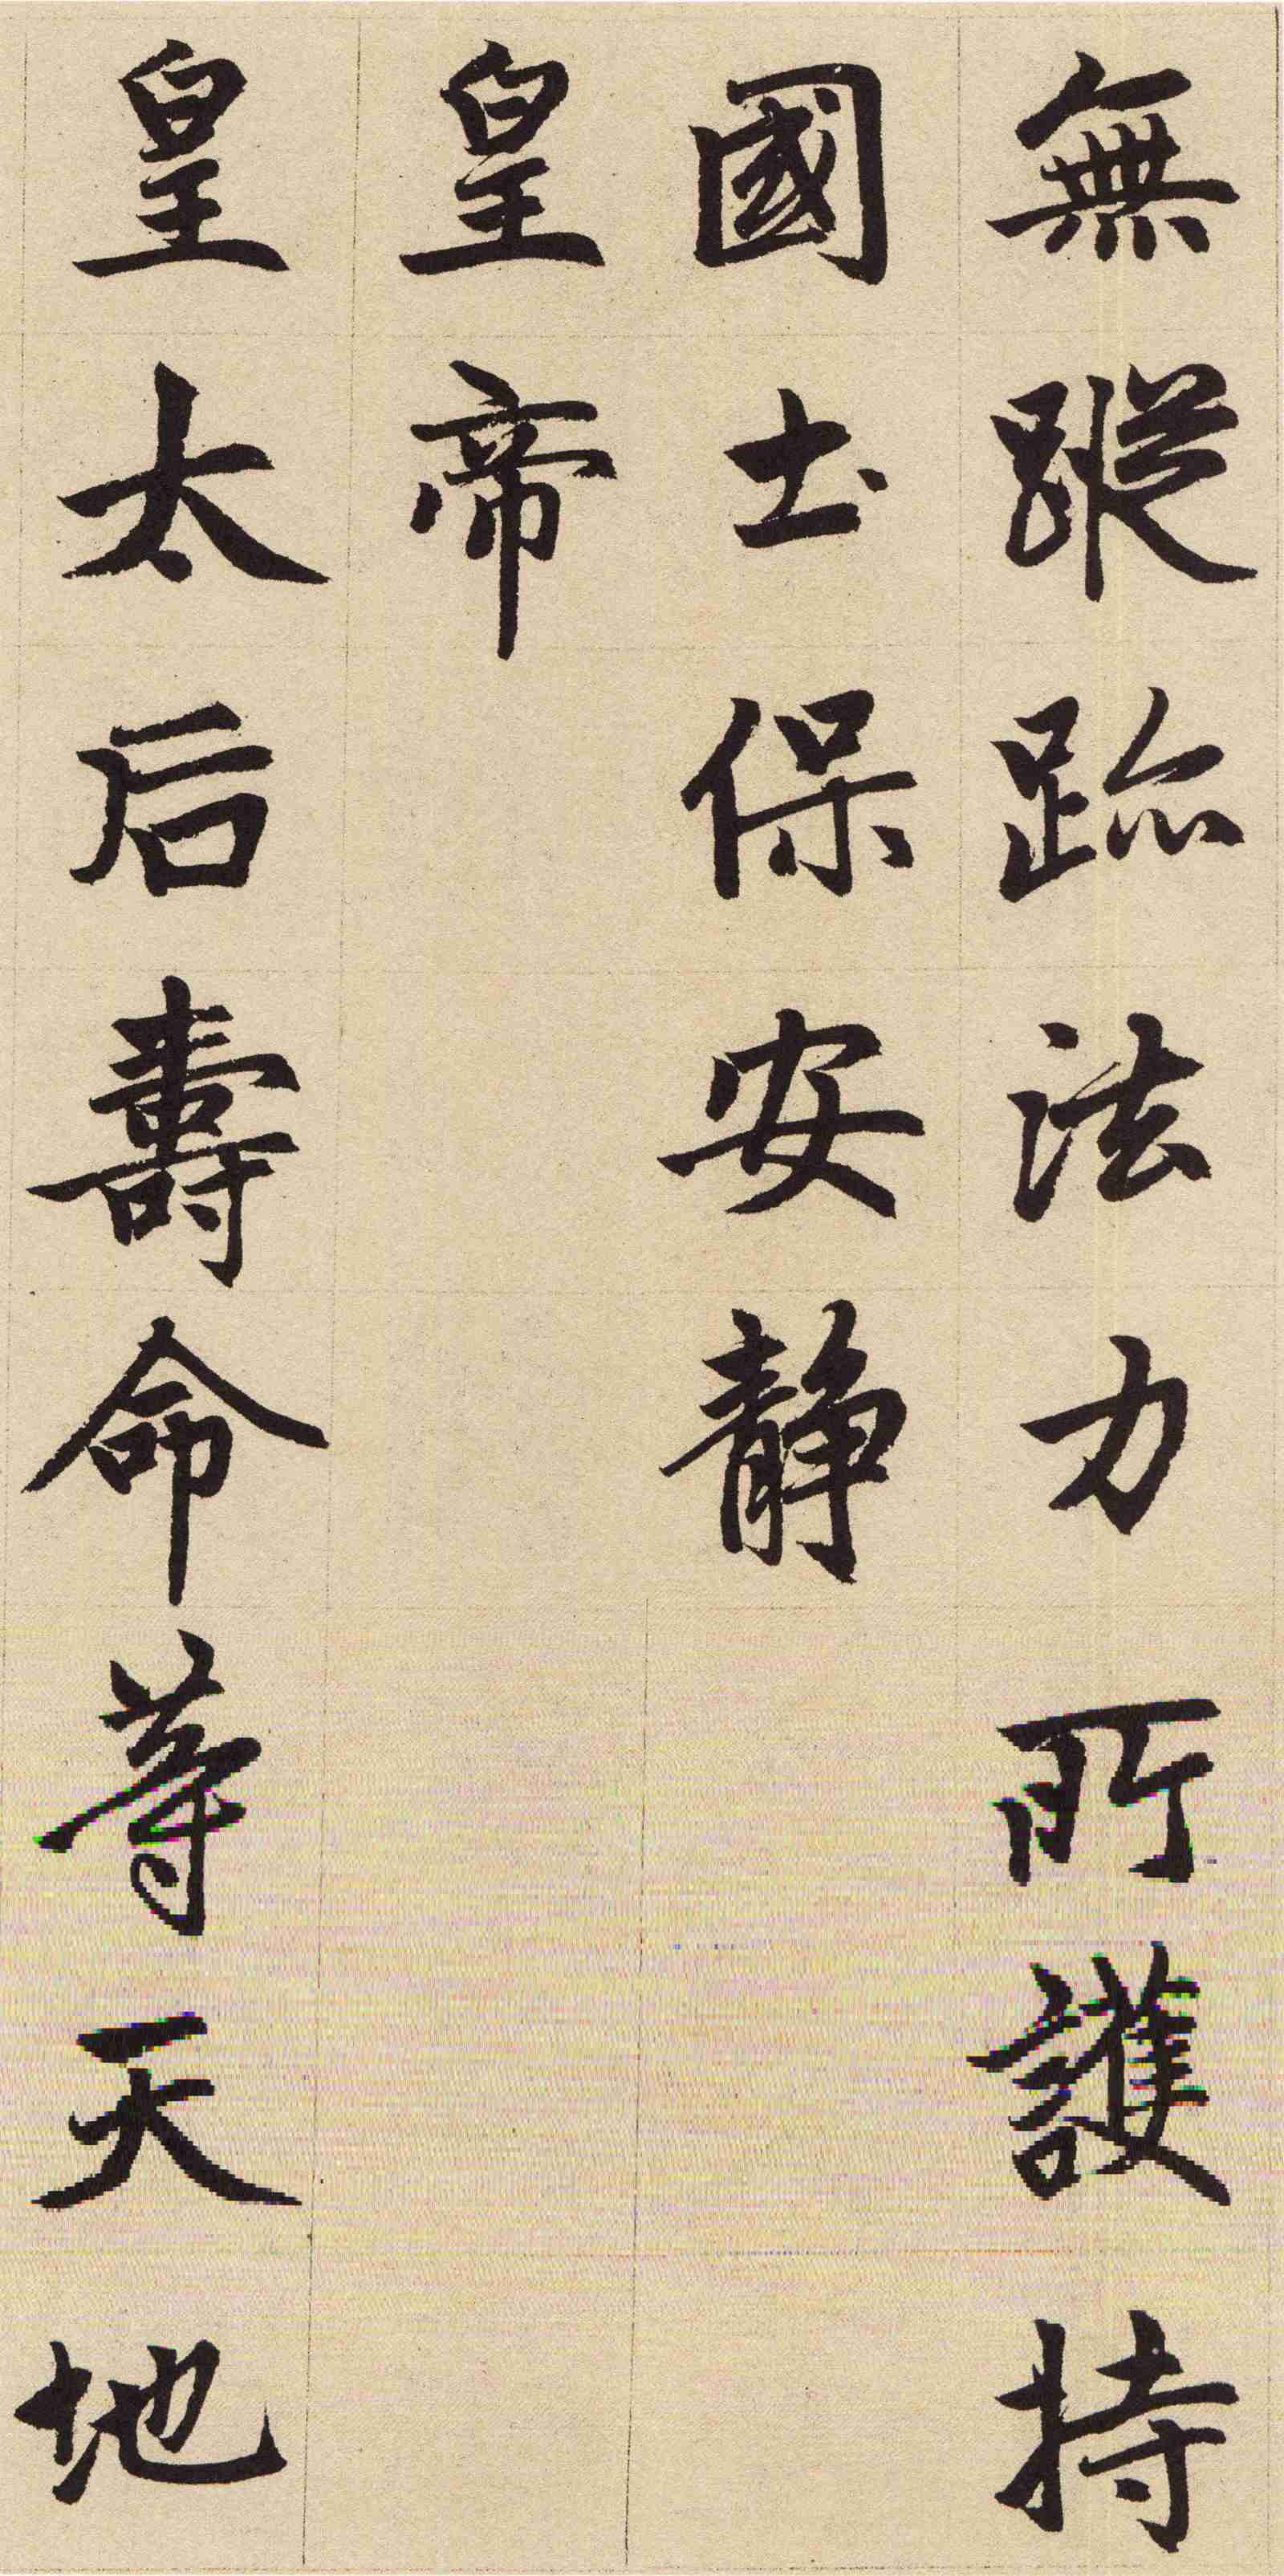 無蹤跡法力所護持
國土保安静
皇帝
皇太后壽命等天地